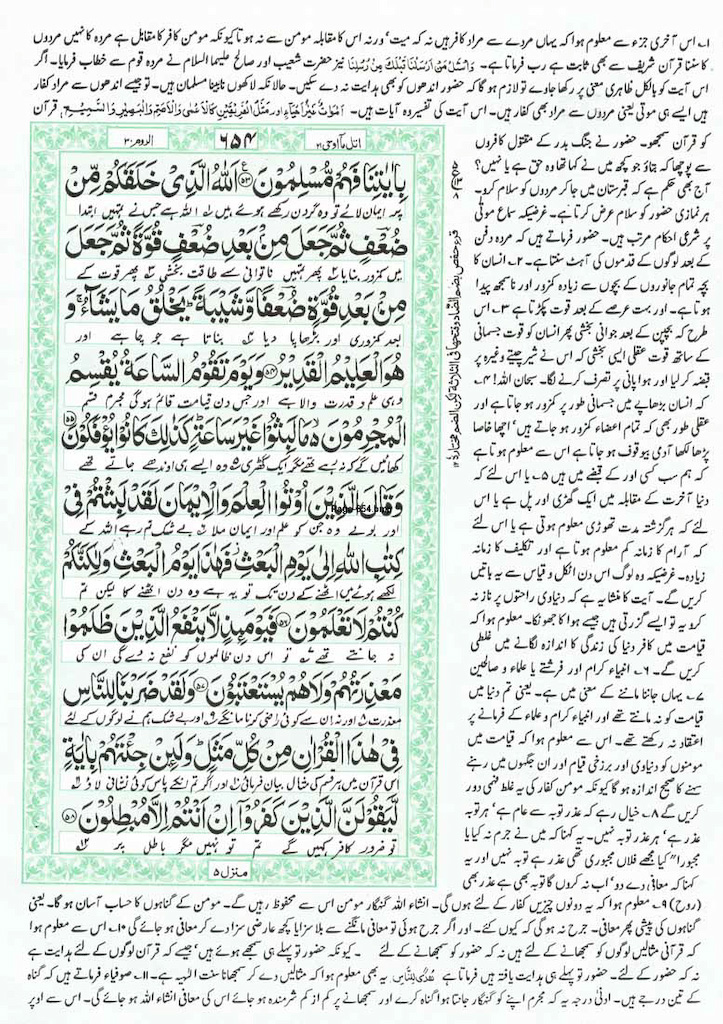 ۱۔ اس آخری جزء سے معلوم ہوا کہ یہاں مردے سے مراد کافر ہیں نہ کہ میت، ورنہ اس کا مقابلہ مومن سے نہ ہوتا کیونکہ مومن کافر کا مقابل ہے مردہ کا نہیں مردوں
کا سننا قرآن شریف سے بھی ثابت ہے رب فرماتا ہے۔ وَاسْئَلْ مَنْ اَرْسَلْنَا قَبْلَكَ مِنْ رُّسُلِنَا نیز حضرت شعیب اور صالح علیہما السلام نے مردہ قوم سے خطاب فرمایا۔ اگر
اس آیت کو بالکل ظاہری معنی پر رکھا جاوے تو لازم ہو گا کہ حضور اندھوں کو بھی ہدایت نہ دے سکیں۔ حالانکہ لاکھوں نابینا مسلمان ہیں۔ تو جیسے اندھوں سے مراد کفار
ہیں ایسے ہی موتیٰ یعنی مردوں سے مراد بھی کفار ہیں۔ اس آیت کی تفسیر وہ آیات ہیں۔ اَمْوَاتٌ غَيْرُ اَحْيَاءٍ اور مَثَلُ الْفَرِيْقَيْنِ كَالْاَعْمٰى وَالْاَصَمِّ وَالْبَصِيْرِ وَالسَّمِيْعِ قرآن
اتل مآ اوحی ۲۱
۶۵۴
الروم ۳۰
بِاٰيٰتِنَا فَهُمْ مُّسْلِمُوْنَ ۵۳ اَللّٰهُ الَّذِيْ خَلَقَكُمْ مِّنْ
پر ایمان لائے تو وہ گردن رکھے ہوئے ہیں اللہ ہے جس نے تمہیں ابتدا
ضُعْفٍ ثُمَّ جَعَلَ مِنْۢ بَعْدِ ضُعْفٍ قُوَّةً ثُمَّ جَعَلَ
میں کمزور بنایا پھر تمہیں ناتوانی سے طاقت بخشی پھر قوت کے
مِنْۢ بَعْدِ قُوَّةٍ ضُعْفًا وَّشَيْبَةً ؕ يَخْلُقُ مَا يَشَآءُ ۚ وَ
بعد کمزوری اور بڑھاپا دیا بناتا ہے جو چاہے اور
هُوَ الْعَلِيْمُ الْقَدِيْرُ ۵۴ وَيَوْمَ تَقُوْمُ السَّاعَةُ يُقْسِمُ
وہی علم و قدرت والا ہے اور جس دن قیامت قائم ہو گی مجرم قسم
الْمُجْرِمُوْنَ ۙ مَا لَبِثُوْا غَيْرَ سَاعَةٍ ؕ كَذٰلِكَ كَانُوْا يُؤْفَكُوْنَ ۵۵
کھائیں گے کہ نہ رہے تھے مگر ایک گھڑی وہ ایسے ہی اوندھے جاتے تھے
وَقَالَ الَّذِيْنَ اُوْتُوا الْعِلْمَ وَالْاِيْمَانَ لَقَدْ لَبِثْتُمْ فِيْ
Page-654.bmp
اور بولے وہ جن کو علم اور ایمان ملا بے شک تم رہے اللہ کے
كِتٰبِ اللّٰهِ اِلٰى يَوْمِ الْبَعْثِ ؗ فَهٰذَا يَوْمُ الْبَعْثِ وَلٰكِنَّكُمْ
لکھے ہوئے میں اٹھنے کے دن تک تو یہ ہے وہ دن اٹھنے کا لیکن تم
كُنْتُمْ لَا تَعْلَمُوْنَ ۵۶ فَيَوْمَئِذٍ لَّا يَنْفَعُ الَّذِيْنَ ظَلَمُوْا
نہ جانتے تھے تو اس دن ظالموں کو نفع نہ دے گی ان کی
مَعْذِرَتُهُمْ وَلَا هُمْ يُسْتَعْتَبُوْنَ ۵۷ وَلَقَدْ ضَرَبْنَا لِلنَّاسِ
معذرت اور نہ ان سے کوئی راضی کرنا مانگے اور بے شک ہم نے لوگوں کے لئے
فِيْ هٰذَا الْقُرْاٰنِ مِنْ كُلِّ مَثَلٍ ؕ وَلَئِنْ جِئْتَهُمْ بِاٰيَةٍ
اس قرآن میں ہر قسم کی مثال بیان فرمائی اور اگر تم انکے پاس کوئی نشانی لاؤ
لَّيَقُوْلَنَّ الَّذِيْنَ كَفَرُوْٓا اِنْ اَنْتُمْ اِلَّا مُبْطِلُوْنَ ۵۸
تو ضرور کافر کہیں گے تم تو نہیں مگر باطل پر
منزل ۵
کو قرآن سمجھو۔ حضور نے جنگ بدر کے مقتول کافروں
سے پوچھا کہ بتاؤ جو کچھ میں نے کہا تھا وہ حق ہے یا نہیں؟
آج بھی حکم ہے کہ قبرستان میں جا کر مردوں کو سلام کرو۔
ہر نمازی حضور کو سلام عرض کرتا ہے۔ غرضیکہ سماع موتیٰ
پر شرعی احکام مرتب ہیں۔ حضور فرماتے ہیں کہ مردہ دفن
کے بعد لوگوں کے قدموں کی آہٹ سنتا ہے۔ ۲۔ انسان کا
بچہ تمام جانوروں کے بچوں سے زیادہ کمزور اور ناسمجھ پیدا
ہوتا ہے۔ اور بہت عرصے کے بعد قوت پکڑتا ہے ۳۔ اس
طرح کہ بچپن کے بعد جوانی بخشی پھر انسان کو قوت جسمانی
کے ساتھ قوت عقلی ایسی بخشی کہ اس نے شیر چیتے وغیرہ پر
قبضہ کر لیا اور ہوا پانی پر تصرف کرنے لگا۔ سبحان اللہ! ۴۔
کہ انسان بڑھاپے میں جسمانی طور پر کمزور ہو جاتا ہے اور
عقلی طور بھی کہ تمام اعضاء کمزور ہو جاتے ہیں، اچھا خاصا
پڑھا لکھا آدمی بیوقوف ہو جاتا ہے اس سے معلوم ہوتا ہے
کہ ہم سب کسی اور کے قبضے میں ہیں ۵۔ یا اس لئے کہ
دنیا آخرت کے مقابلہ میں ایک گھڑی اور پل ہے یا اس
لئے کہ ہر گزشتہ مدت تھوڑی معلوم ہوتی ہے یا اس لئے
کہ آرام کا زمانہ کم معلوم ہوتا ہے اور تکلیف کا زمانہ
زیادہ۔ غرضیکہ وہ لوگ اس دن اٹکل و قیاس سے یہ باتیں
کریں گے۔ آیت کا منشا یہ ہے کہ دنیاوی راحتوں پر ناز نہ
کرو یہ تو ایسے گزرتی ہیں جیسے ہوا کا جھونکا۔ معلوم ہوا کہ
قیامت میں کافر دنیا کی زندگی کا اندازہ لگانے میں غلطی
کریں گے۔ ۶۔ انبیاء کرام اور فرشتے یا علماء و صالحین
۷۔ یہاں جاننا ماننے کے معنی میں ہے۔ یعنی تم دنیا میں
قیامت کو نہ مانتے تھے اور انبیاء کرام و علماء کے فرمانے پر
اعتقاد نہ رکھتے تھے۔ اس سے معلوم ہوا کہ قیامت میں
مومنوں کو دنیاوی اور برزخی قیام اور ان جگہوں میں رہنے
سہنے کا صحیح اندازہ ہو گا کیونکہ مومن کفار کی یہ غلط فہمی دور
کریں گے ۸۔ خیال رہے کہ عذر توبہ سے عام ہے، ہر توبہ
عذر ہے، ہر عذر توبہ نہیں۔ یہ کہنا کہ میں نے جرم نہ کیا یا
مجبورا" کیا مجھے فلاں مجبوری تھی عذر ہے توبہ نہیں اور یہ
کہنا کہ معافی دے دو، اب نہ کروں گا توبہ بھی ہے عذر بھی
(روح) ۹۔ معلوم ہوا کہ یہ دونوں چیزیں کفار کے لئے ہوں گی۔ انشاء اللہ گنہگار مومن اس سے محفوظ رہیں گے۔ مومن کے گناہوں کا حساب آسان ہو گا۔ یعنی
گناہوں کی پیشی پھر معافی۔ جرح نہ ہو گی کہ کیوں کئے۔ اور اگر جرح ہوئی تو معافی مانگنے سے بلا سزا یا کچھ عارضی سزا دے کر معافی ہو جائے گی ۱۰۔ اس سے معلوم ہوا
کہ قرآنی مثالیں لوگوں کو سمجھانے کے لئے ہیں نہ کہ حضور کو سمجھانے کے لئے۔ کیونکہ حضور تو پہلے ہی سمجھے ہوئے ہیں، جیسے کہ قرآن لوگوں کے لئے ہدایت ہے
نہ کہ حضور کے لئے۔ حضور تو پہلے ہی ہدایت یافتہ ہیں فرماتا ہے هُدًى لِّلنَّاسِ یہ بھی معلوم ہوا کہ مثالیں دے کر سمجھانا سنت الٰہیہ ہے۔ ۱۱۔ صوفیاء فرماتے ہیں کہ گناہ
کے تین درجے ہیں۔ ادنیٰ درجہ یہ کہ مجرم اپنے کو گنہگار جانتا ہوا گناہ کرے اور سمجھانے پر کم از کم شرمندہ ہو جائے اس کی معافی انشاء اللہ ہو جائے گی۔ اس سے اوپر